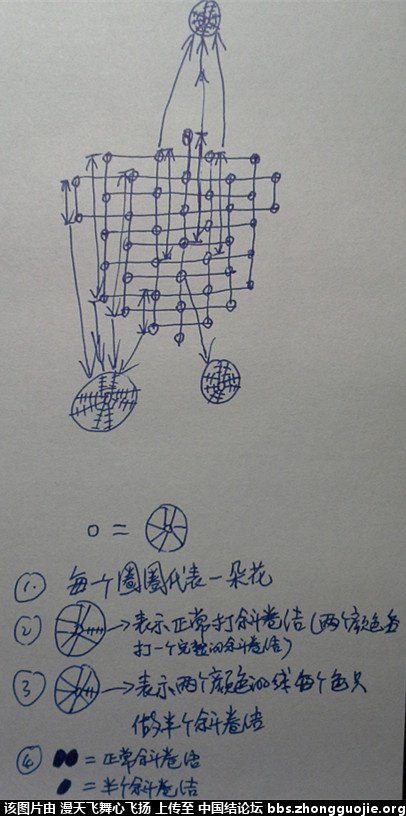 o =
① 每个圈圈代表一朵花
② →表示正常打斜卷结(两个颜色各
打一个完整的斜卷结)
③ →表示两个颜色的线每个色只
做半个斜卷结
④ = 正常斜卷结
= 半个斜卷结
该图片由 漫天飞舞心飞扬 上传至 中国结论坛 bbs.zhongguojie.org